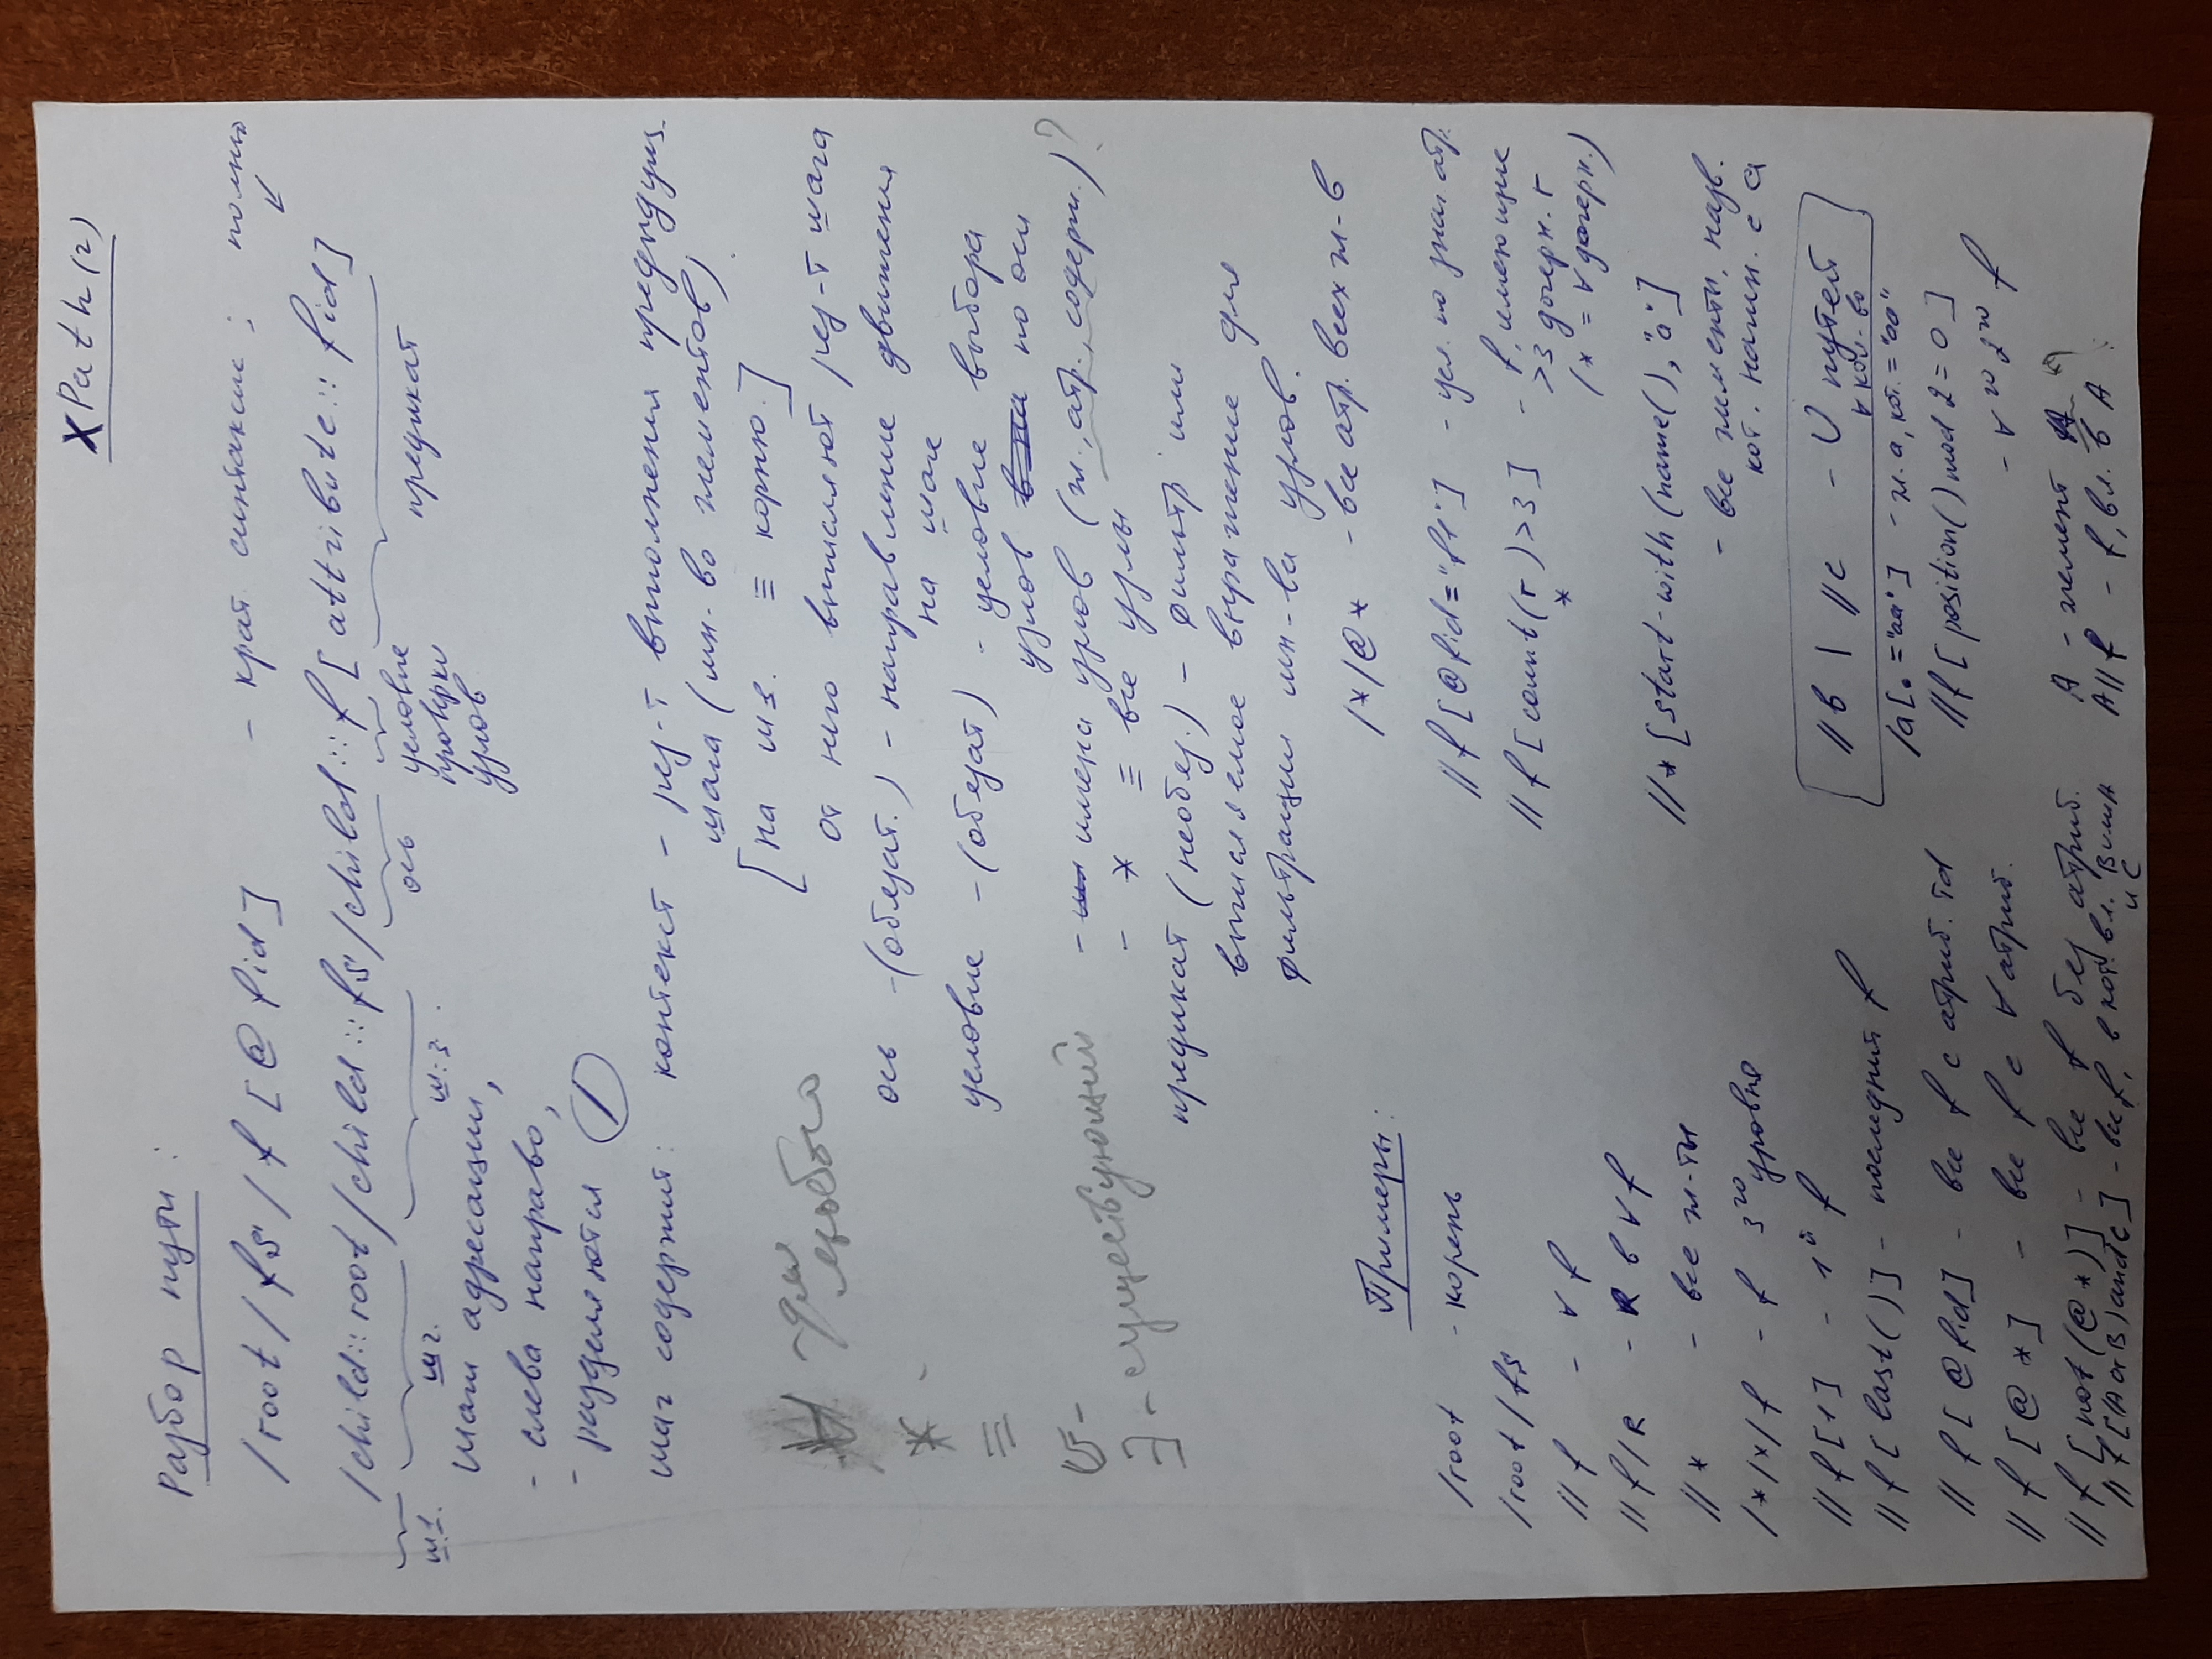 XPath(2)
Разбор пути:
/root/fs/f[@fid] - крат. синтаксис; полный
/child::root/child::fs/child::f[attribute::fid]
ш1. ш2. ш.3. ось условие проверки узлов предикат
Шаги адресации,
- слева направо,
- разделяются /
шаг содержит: контекст - рез-т выполнения предыдущ.
шага (мн-во элементов)
[на ш1. ≡ корню.]
от него вычисляют рез-т шага
ось -(обязат.) - направление движения
на шаге
условие -(обязат) - условие выбора
узлов по оси
- имена узлов (эл., атр., содерж.)?
- * ≡ все узлы
предикат (необяз.) - фильтр или
вычисляемое выражение для
фильтрации мн-ва узлов.
∀ - для
любого
* -
≡
∃ - существующий
/*/@* - все атр. всех эл-в
Примеры:
/root - корень
/root/fs
//f - ∀ f
//f/R - R в ∀ f
//* - все эл-ты
/*/*/f - f 3го уровня
//f[1] - 1й f
//f[last()] - последний f
//f[@fid] - все f с атриб. id
//f[@*] - все f с ∀ атриб.
//f[not(@*)] - все f без атриб.
//f[(A or B) and C] - все f, в кот. вл. B или A
и C
//f[@fid="f1"] - усл. по знач атр.
//f[count(r)>3] - f, имеющие
* >3 дочерн. r
(* = ∀ дочерн.)
//*[start-with(name(),"a"]
- все элементы, назв.
кот. начин. с a
//b | //c - ∪ путей
∀ кол-во
/a[.="aa"] - эл. a, кот. = "aa"
//f[position() mod 2=0]
- ∀го 2го f
A - элемент
A//f - f, вл. в A